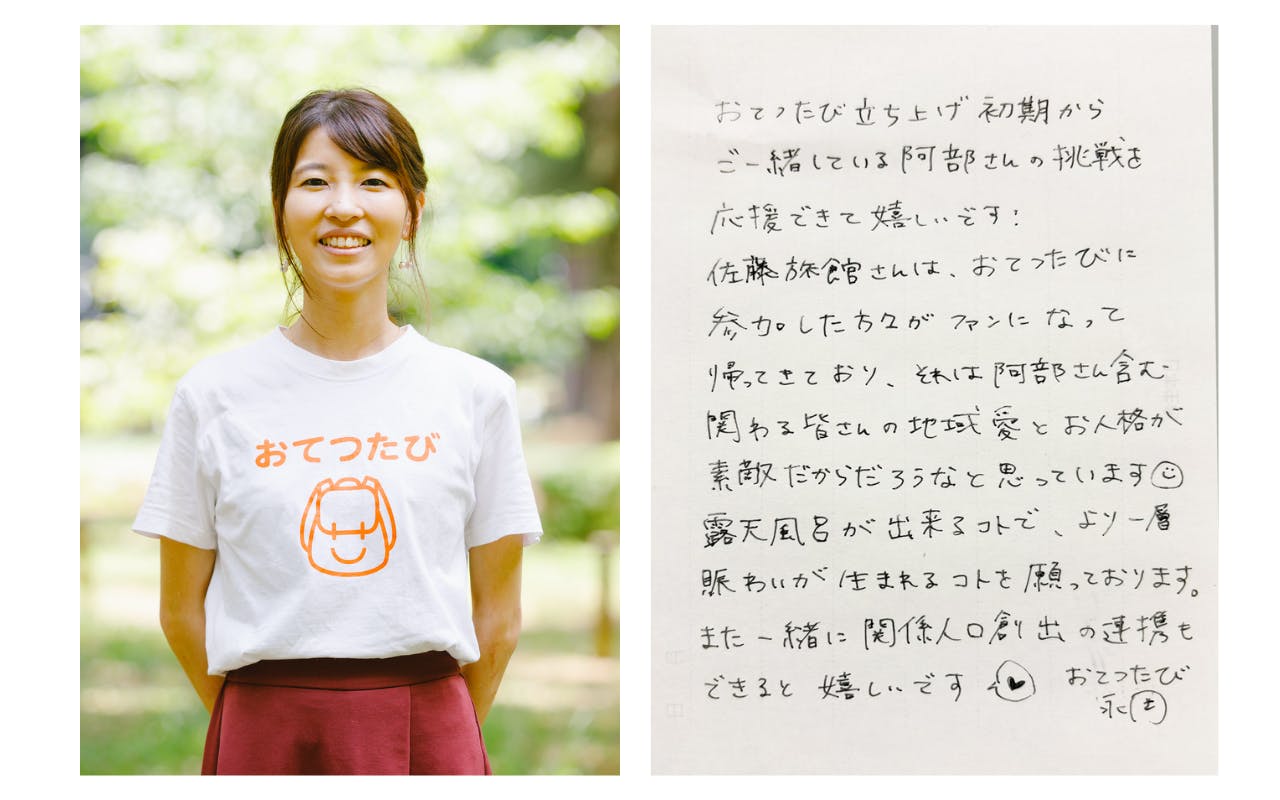 おてつたび
おてつたび立ち上げ初期から
ご一緒している阿部さんの挑戦を
応援できて嬉しいです！
佐藤旅館さんは、おてつたびに
参加した方々がファンになって
帰ってきており、それは阿部さん含む
関わる皆さんの地域愛とお人格が
素敵だからだろうなと思っています
露天風呂が出来るコトで、より一層
賑わいが生まれるコトを願っております。
また一緒に関係人口創出の連携も
できると嬉しいです
おてつたび
永